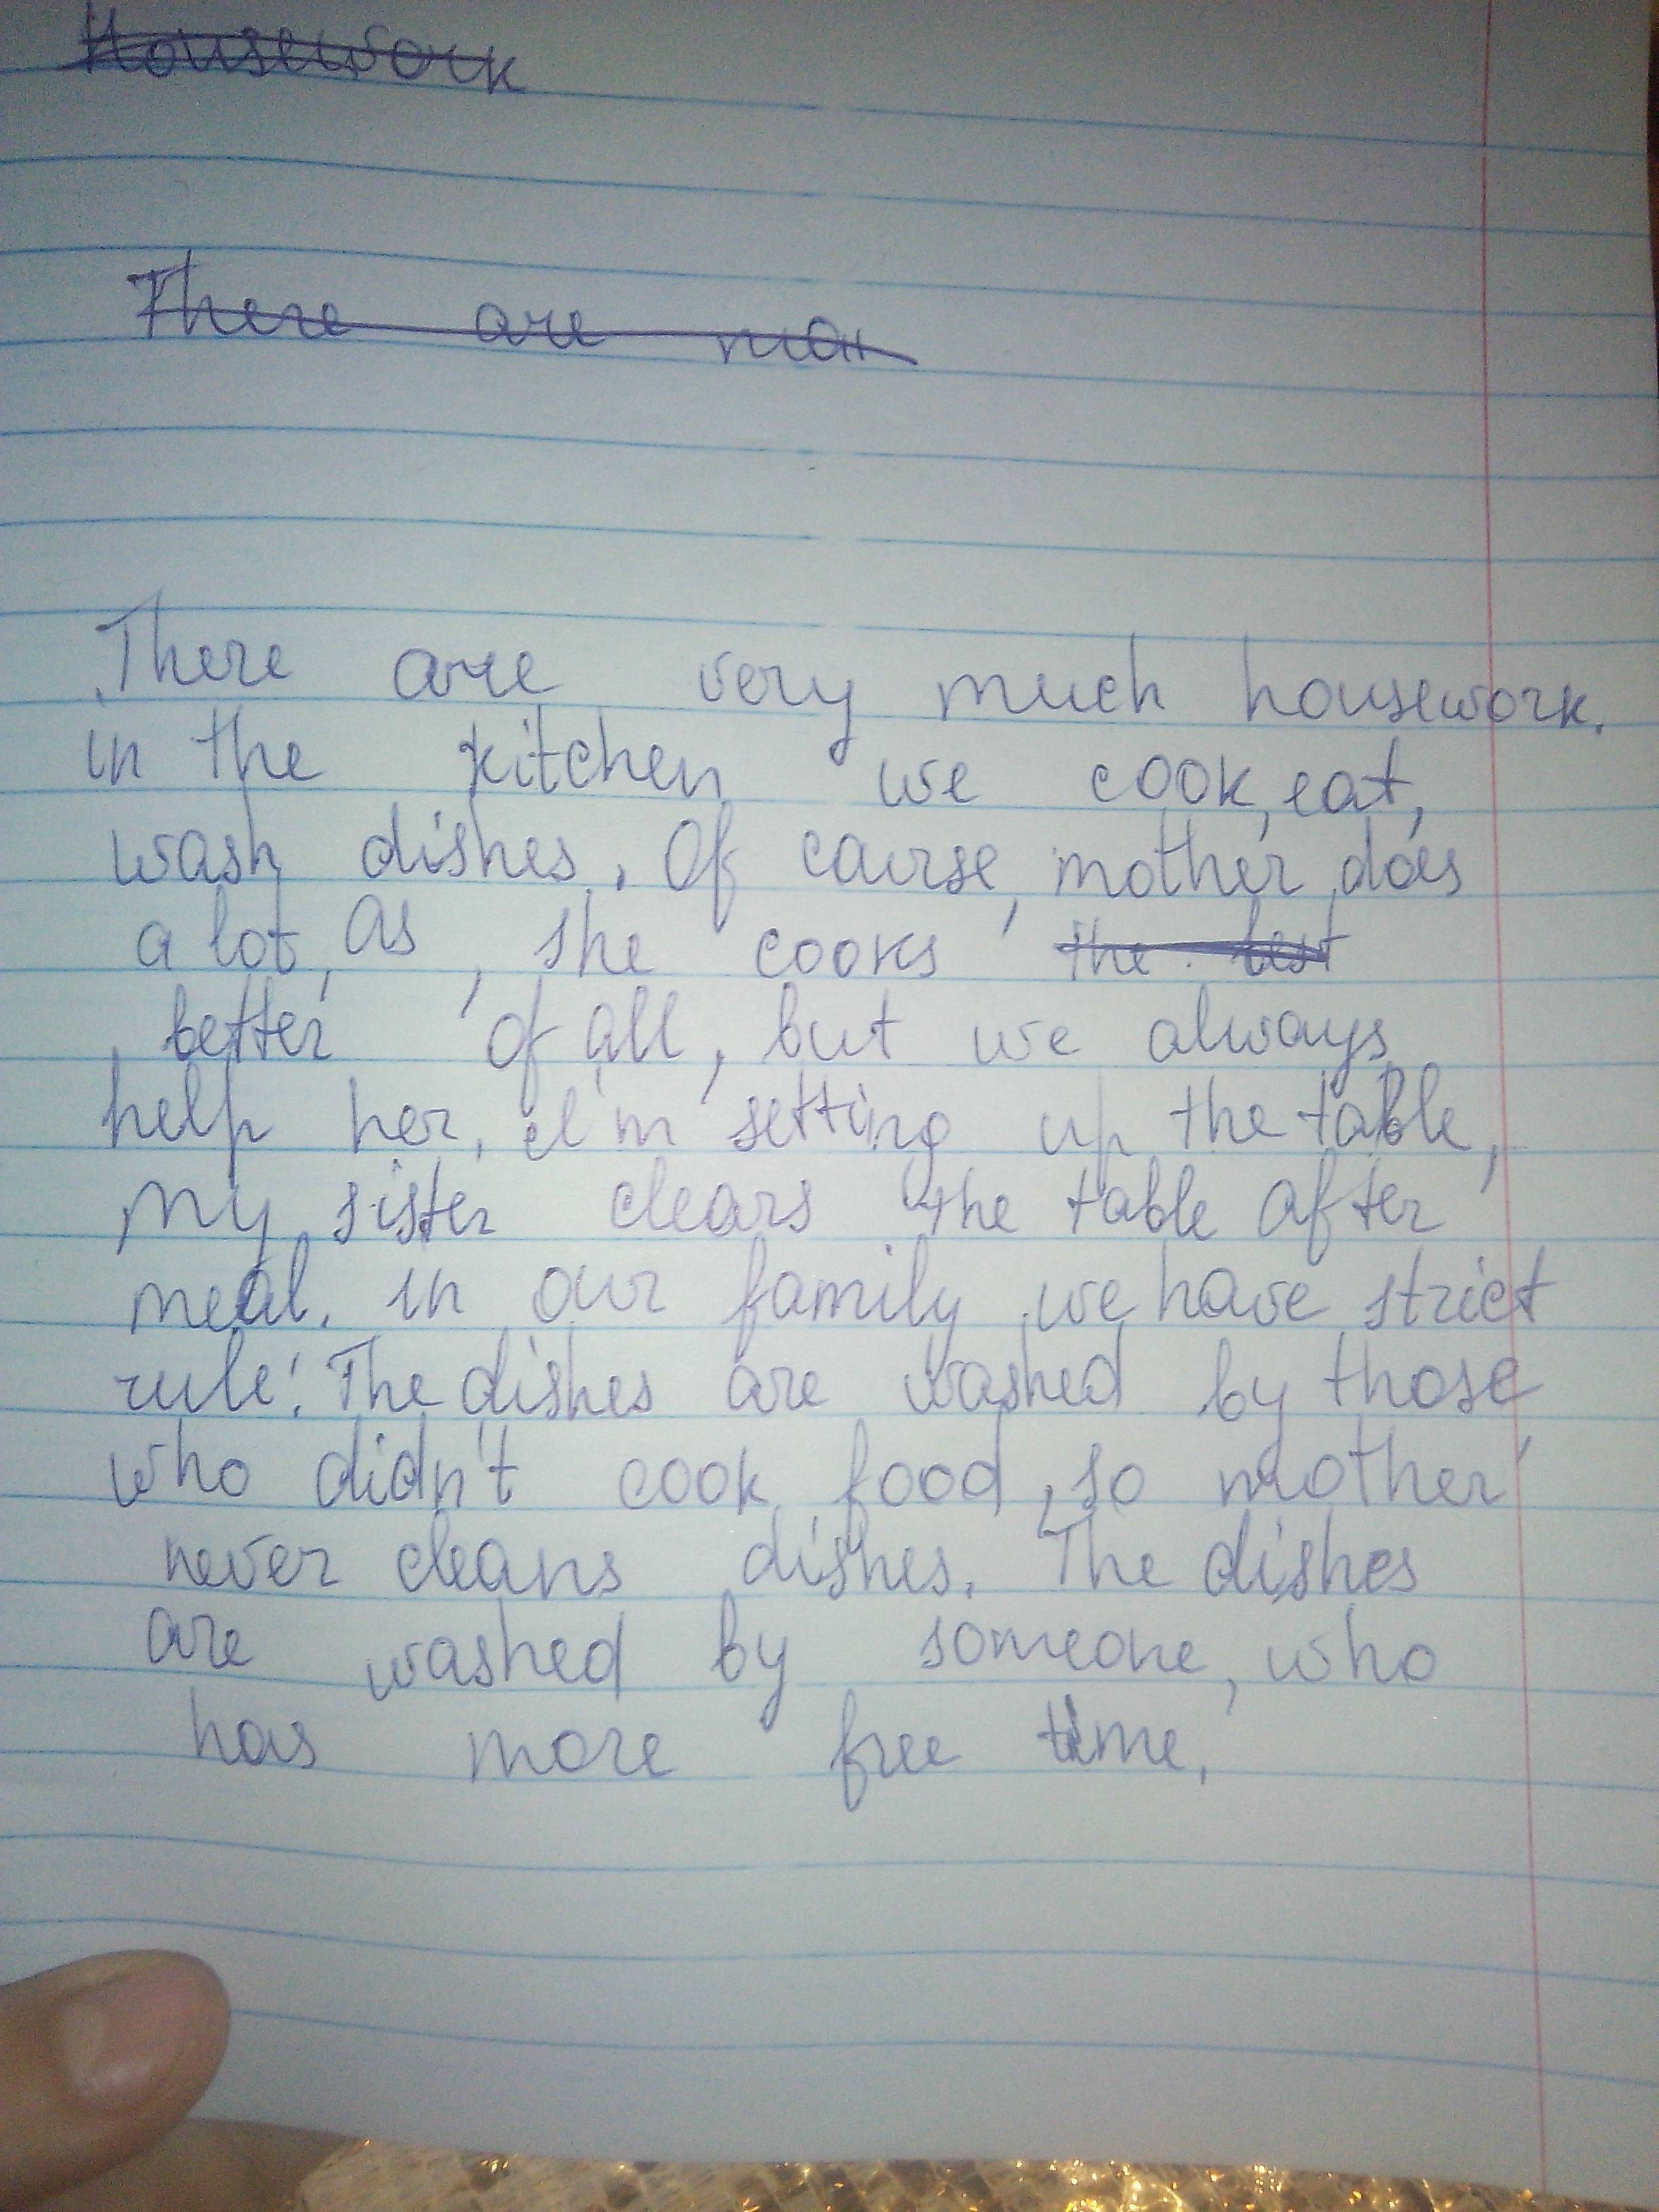 Housework
There are man
There are very much housework.
in the kitchen we cook, eat,
wash dishes. Of caurse, mother does
a lot, as, she cooks the best
better of all, but we always
help her. I'm setting up the table,
my sister clears the table after
meal. in our family we have strict
rule: The dishes are washed by those,
who didn't cook food, so mother
never cleans dishes. The dishes
are washed by someone, who
has more free time.